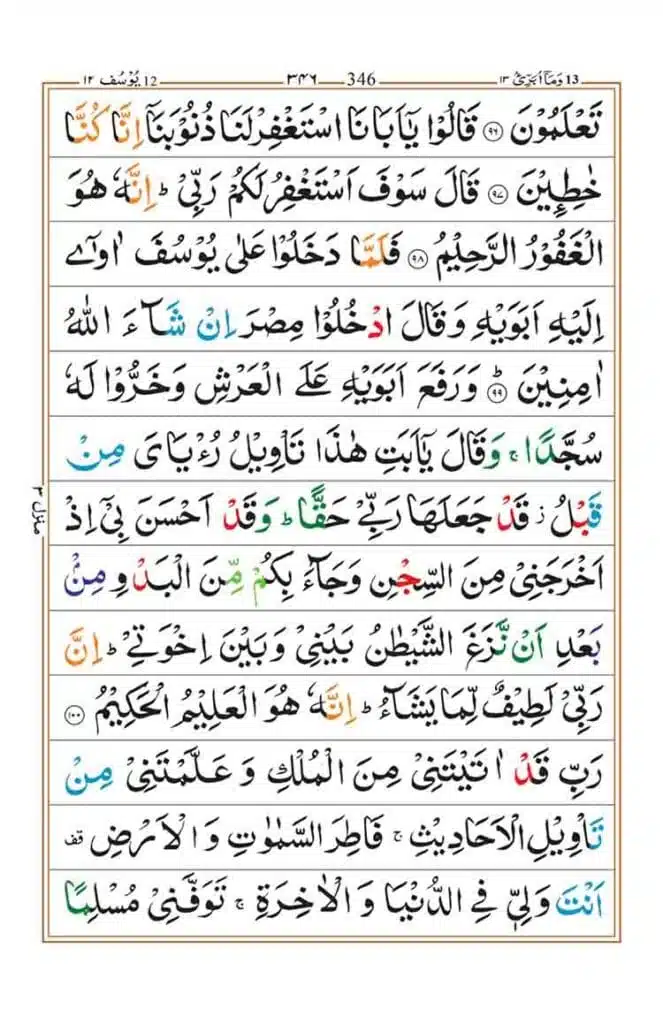 12 يُوْسُف ١٢ ٣٤٦ 346 13 وَمَآ اُبَرِّئُ ١٣
تَعْلَمُوْنَ ٩٦ قَالُوْا يٰۤاَبَانَا اسْتَغْفِرْ لَنَا ذُنُوْبَنَاۤ اِنَّا كُنَّا
خٰطِـِٕيْنَ ٩٧ قَالَ سَوْفَ اَسْتَغْفِرُ لَكُمْ رَبِّيْ ؕ اِنَّهٗ هُوَ
الْغَفُوْرُ الرَّحِيْمُ ٩٨ فَلَمَّا دَخَلُوْا عَلٰى يُوْسُفَ اٰوٰۤى
اِلَيْهِ اَبَوَيْهِ وَقَالَ ادْخُلُوْا مِصْرَ اِنْ شَآءَ اللّٰهُ
اٰمِنِيْنَ ؕ ٩٩ وَرَفَعَ اَبَوَيْهِ عَلَى الْعَرْشِ وَخَرُّوْا لَهٗ
سُجَّدًا ۚ وَقَالَ يٰۤاَبَتِ هٰذَا تَاْوِيْلُ رُءْيَايَ مِنْ
قَبْلُ ؗ قَدْ جَعَلَهَا رَبِّيْ حَقًّا ؕ وَقَدْ اَحْسَنَ بِيْۤ اِذْ
اَخْرَجَنِيْ مِنَ السِّجْنِ وَجَآءَ بِكُمْ مِّنَ الْبَدْوِ مِنْۢ
بَعْدِ اَنْ نَّزَغَ الشَّيْطٰنُ بَيْنِيْ وَبَيْنَ اِخْوَتِيْ ؕ اِنَّ
رَبِّيْ لَطِيْفٌ لِّمَا يَشَآءُ ؕ اِنَّهٗ هُوَ الْعَلِيْمُ الْحَكِيْمُ ١٠٠
رَبِّ قَدْ اٰتَيْتَنِيْ مِنَ الْمُلْكِ وَعَلَّمْتَنِيْ مِنْ
تَاْوِيْلِ الْاَحَادِيْثِ ۚ فَاطِرَ السَّمٰوٰتِ وَالْاَرْضِ قف
اَنْتَ وَلِيّٖ فِي الدُّنْيَا وَالْاٰخِرَةِ ۚ تَوَفَّنِيْ مُسْلِمًا
منزل ٣